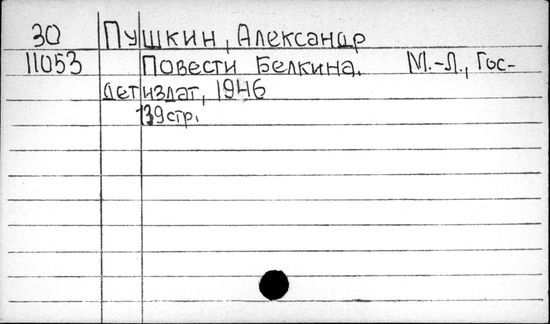 30 Пушкин, Александр
11053 Повести Белкина. М.-Л., Гос-
детиздат, 1946
139стр.